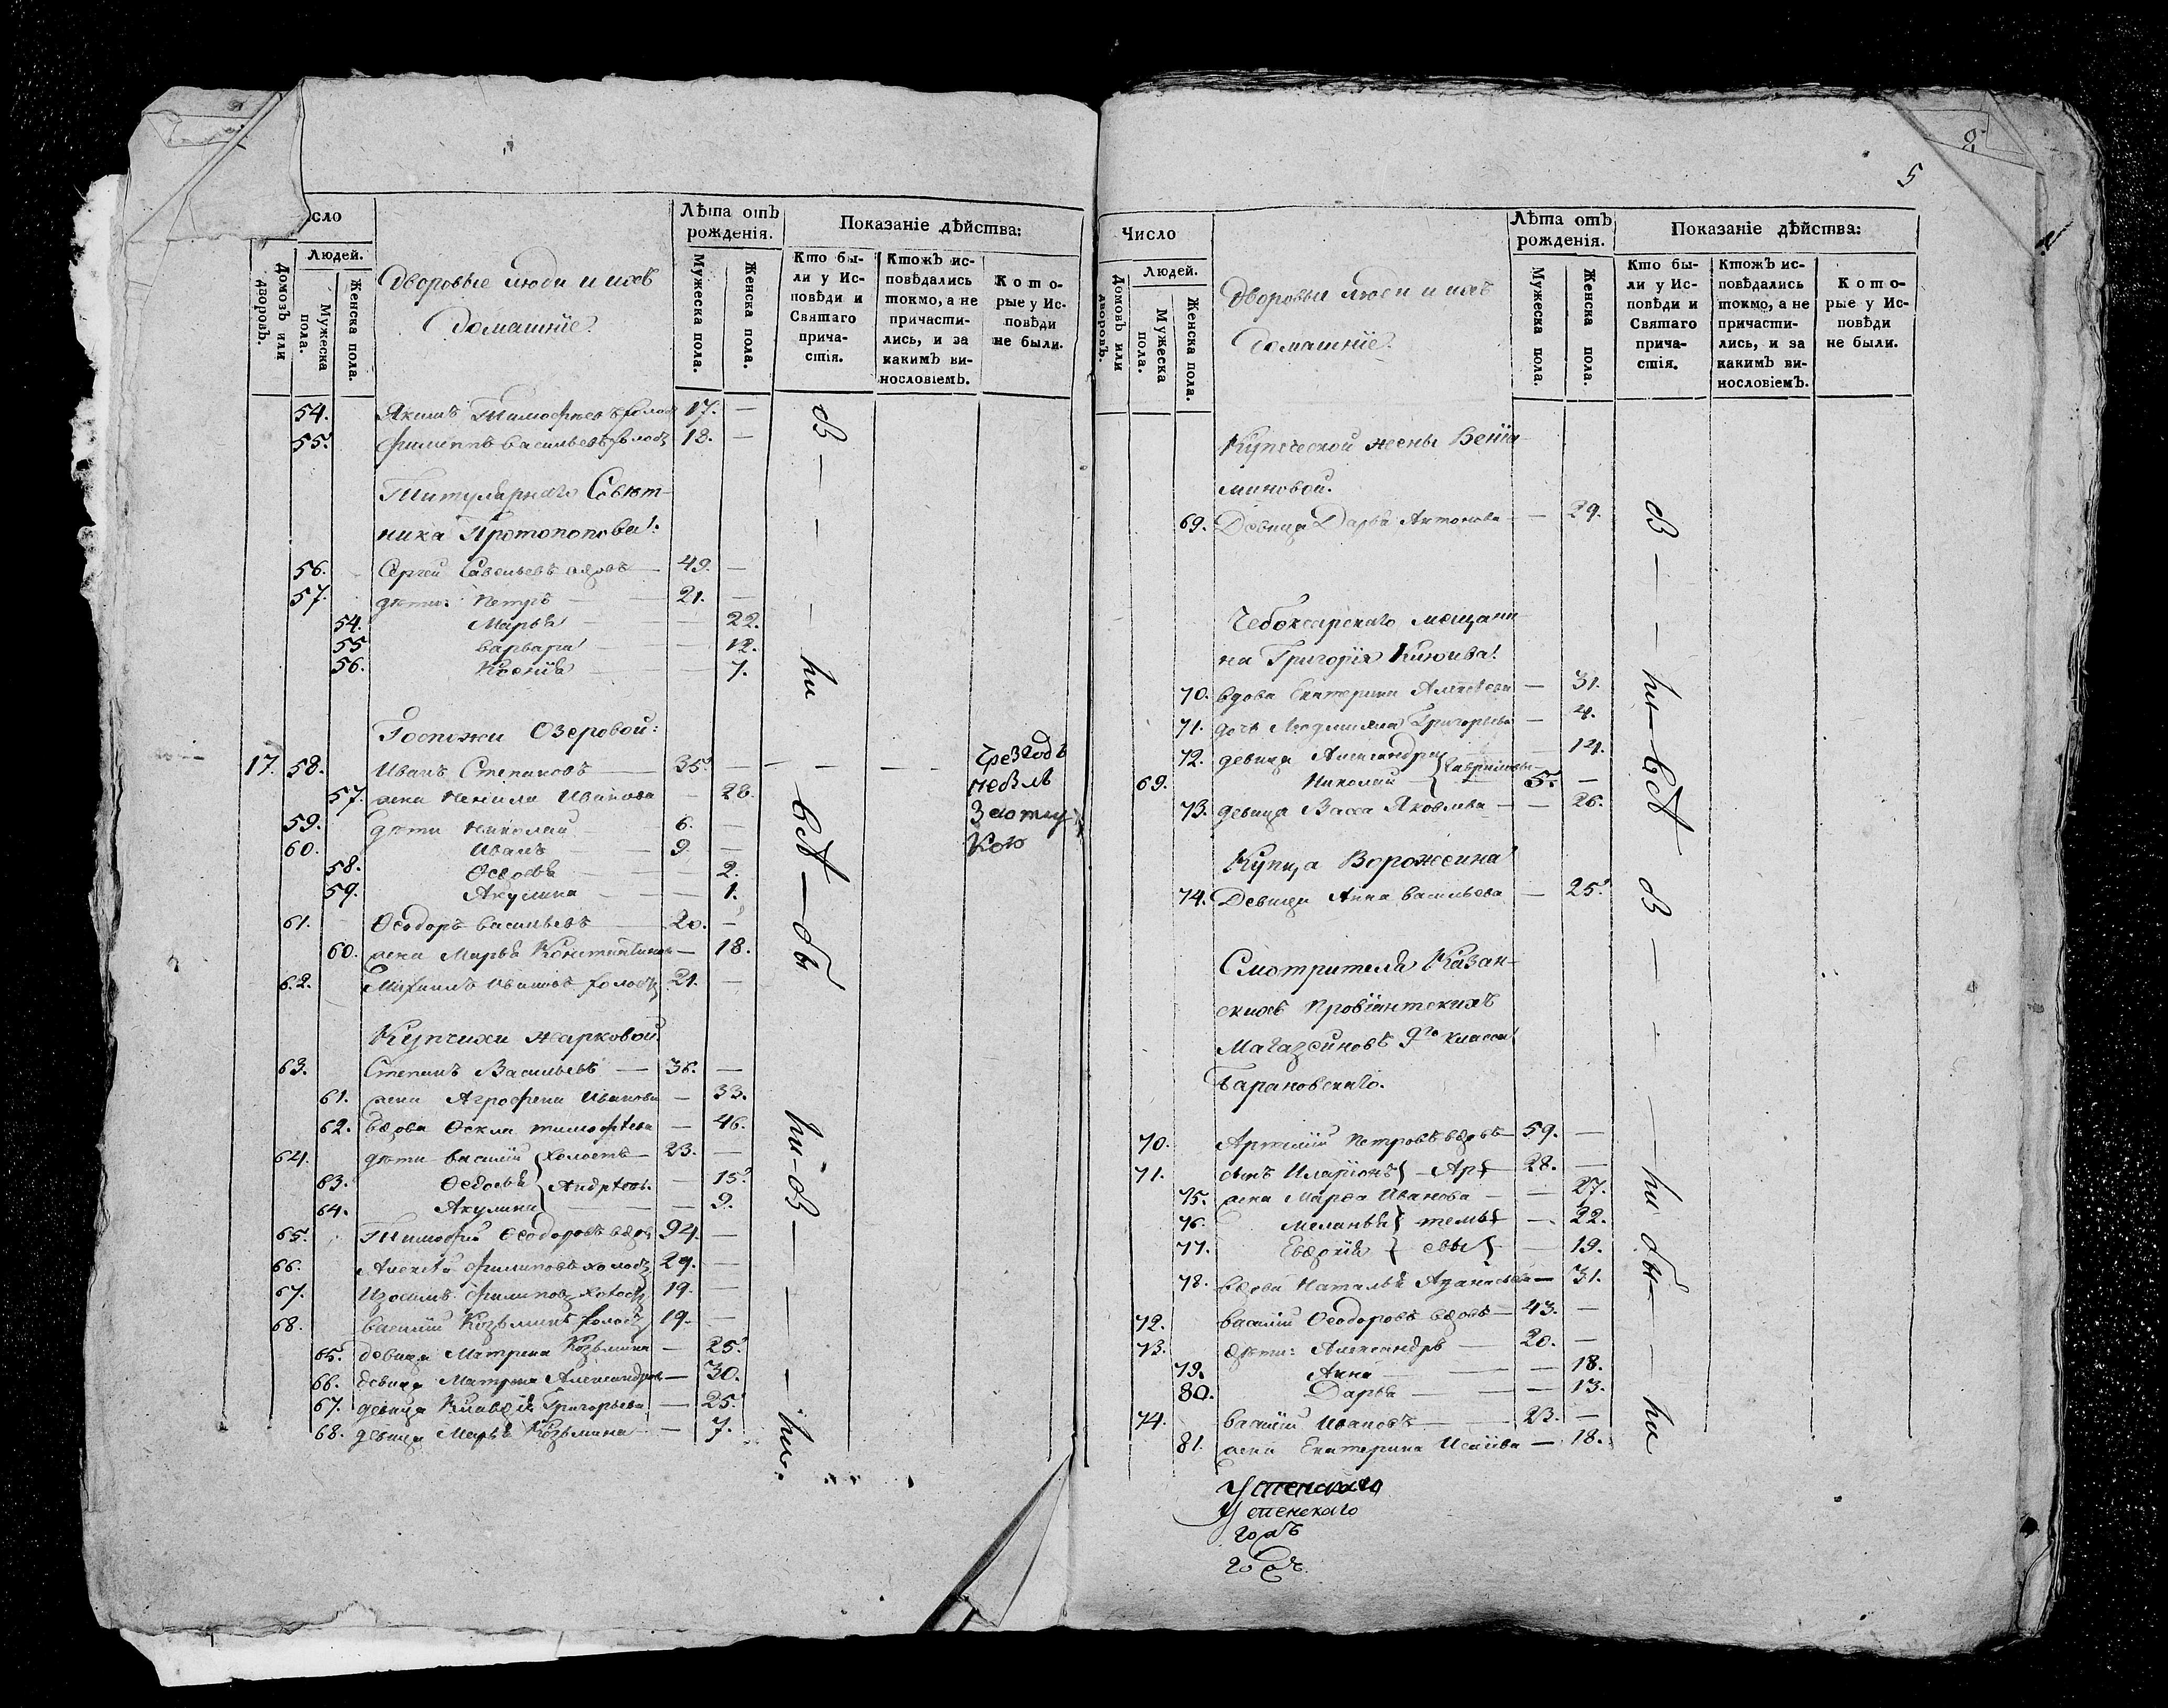 5
Число
Людей.
Домовъ или дворовъ.
Мужеска пола.
Женска пола.
Дворовые люди и ихъ
домашнїе.
Лѣта отъ рожденїя.
Мужеска пола.
Женска пола.
Показанїе дѣйства:
Кто были у Исповѣди и Святаго причастїя.
Ктожъ исповѣдались токмо, а не причастились, и за какимъ винословїемъ.
Которые у Исповѣди не были.
54. Якимъ Тимофѣевъ холост 17. —
55. Филиппъ Васильевъ холост 18. —
Титулярнаго Совѣт-
ника Протопопова.
56. Сергей Савельевъ вдовъ — 49. —
57. дѣти: Петръ — 21. —
54. Марья — 22.
55 Варвара — 12.
56. Ксенїя — 7.
Госпожи Озеровой:
17. 58. Иванъ Степановъ — 35. — — — чрезгодъ
57. жена Ненила Иванова — 28. небылъ
59. дѣти Николай — 6. — Заотлу
60. Иванъ — 9. — кою
58. — 2.
59. Акулина — 1.
61. Ѳеодоръ Васильевъ — 20. —
60. жена Марья Константинова — 18.
62. Михаилъ Ивановъ холост 21. —
Купчихи Жарковой
63. Степанъ Васильевъ — 36. —
61. жена Агрофена Иванова — 33.
62. вдова Ѳекла Тимофѣева — 46.
64. дѣти Василїй холостъ — 23. —
63. Ѳедосья Андрѣевы. — 15.
64. Акулина — 9.
65. Тимофей Ѳеодоровъ вдов 94. —
66. Алексѣй Филиповъ холост 29. —
67. Изосимъ Филипов холост 19. —
68. Василїй Козьминъ холост 19. —
65. девица Матрена Козьмина — 25.
66. девица Матрена Александрова — 30.
67. девица Клавдїя Григорьева — 25.
68. девица Марья Козьмина — 7.
Число
Людей.
Домовъ или дворовъ.
Мужеска пола.
Женска пола.
Дворовые люди и ихъ
домашнїе.
Лѣта отъ рожденїя.
Мужеска пола.
Женска пола.
Показанїе дѣйства:
Кто были у Исповѣди и Святаго причастїя.
Ктожъ исповѣдались токмо, а не причастились, и за какимъ винословїемъ.
Которые у Исповѣди не были.
Купеческой жены Венїа-
миновой.
69. Девица Дарья Антонова — 29.
Чебоксарскаго мещани-
на Григорїя
70. вдова Екатерина Алексѣева — 31.
71. дочь Людмилла Григорьева — 4.
72. девица Александра Гавриловы — 14.
69. Николай — 5. —
73. девица Васса Яковлева — 26.
Купца Ворожеина
74. Девица Анна Васильева — 25.
Смотрителя Казан-
скихъ Провїантскихъ
Магазеиновъ 9го класса
Барановскаго.
70. Артемїй Петровъ вдовъ — 59. —
71. сынъ Иларїонъ — Ар — 28. —
75. жена Марѳа Иванова — 27.
76. Меланья темье — 22.
77. Евдокїя евы — 19.
78. вдова Наталья — 31.
72. Василїй Ѳеодоровъ вдовъ — 43. —
73. дѣти: Александръ — 20. —
79. Анна — 18.
80. Дарья — 13.
74. Василїй Ивановъ — 23. —
81. жена Екатерина Исаїева — 18.
Успенскаго
Успенскаго
годъ
годъ.